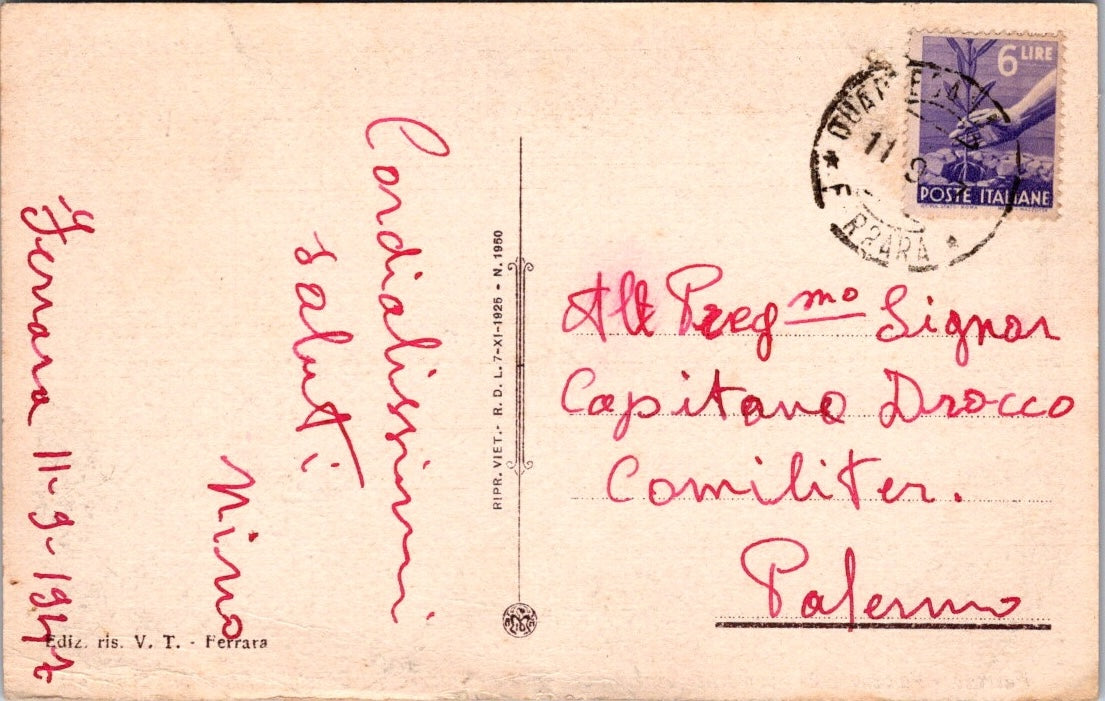 Ferrara 11-9-1947
Cordialissimi
saluti
Nino
Ediz. ris. V. T. - Ferrara
RIPR. VIET. - R. D. L. 7-XI-1925 - N. 1950
6 LIRE
POSTE ITALIANE
11 9
Preg mo Signor
Capitano Drocco
Comiliter.
Palermo